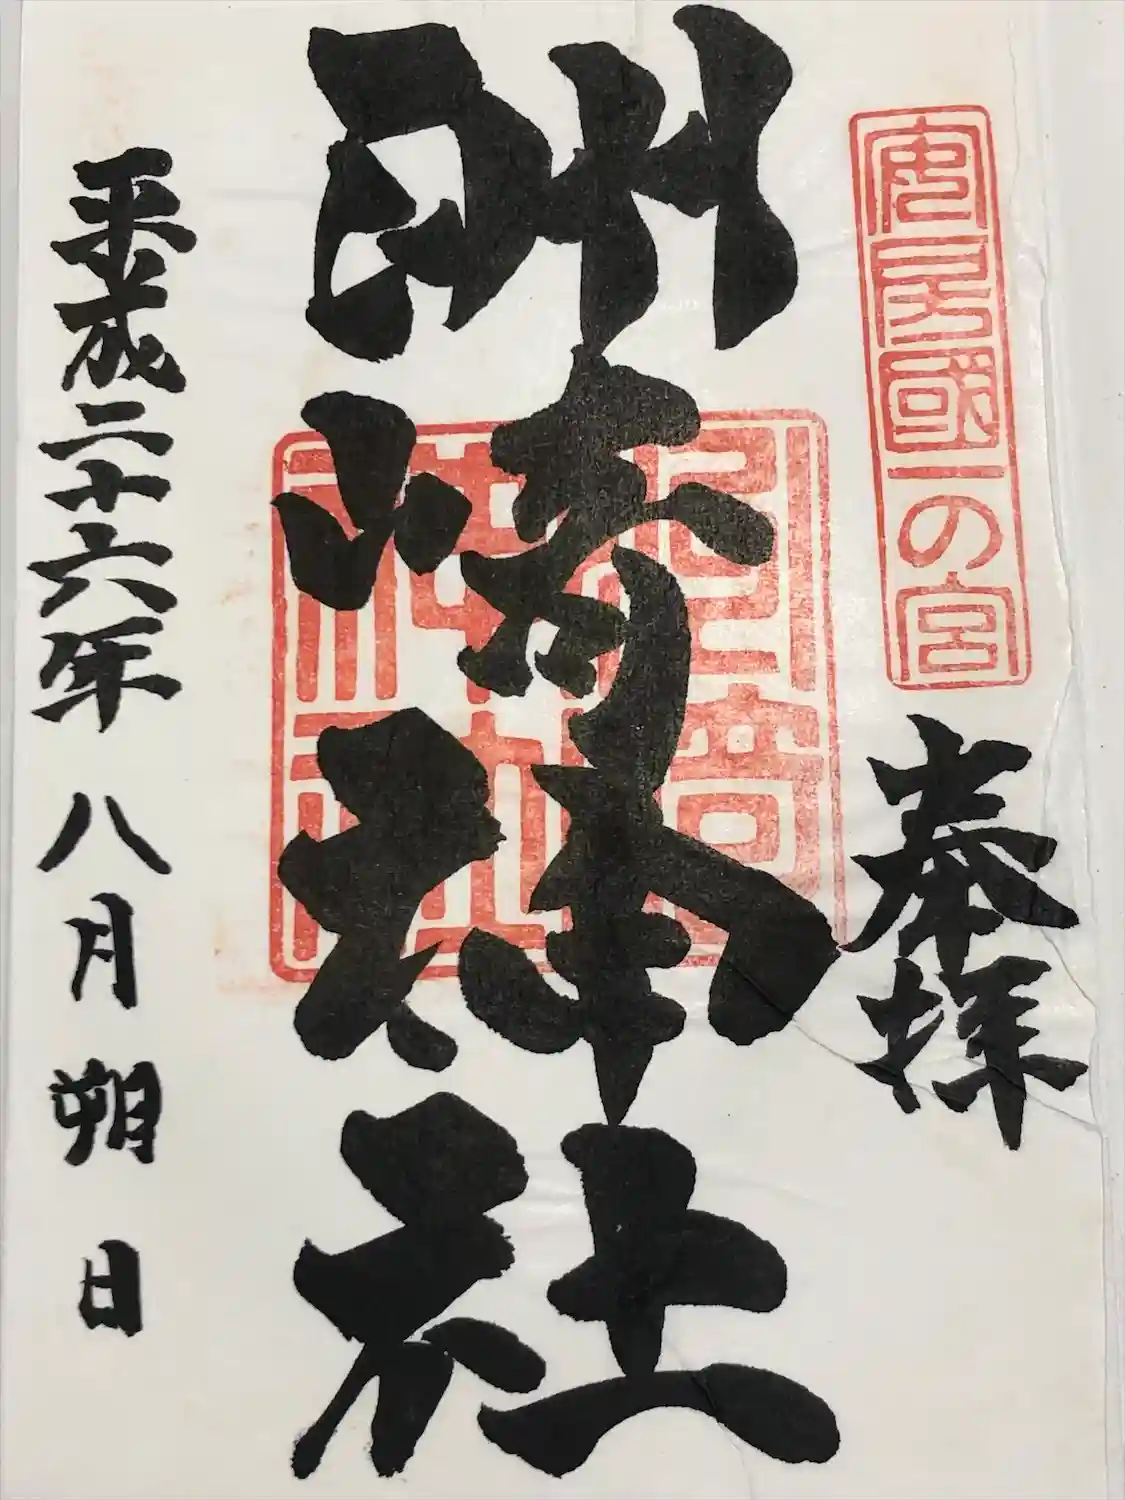 安房國一の宮
奉拝
洲崎神社
洲崎神社
平成二十六年八月朔日